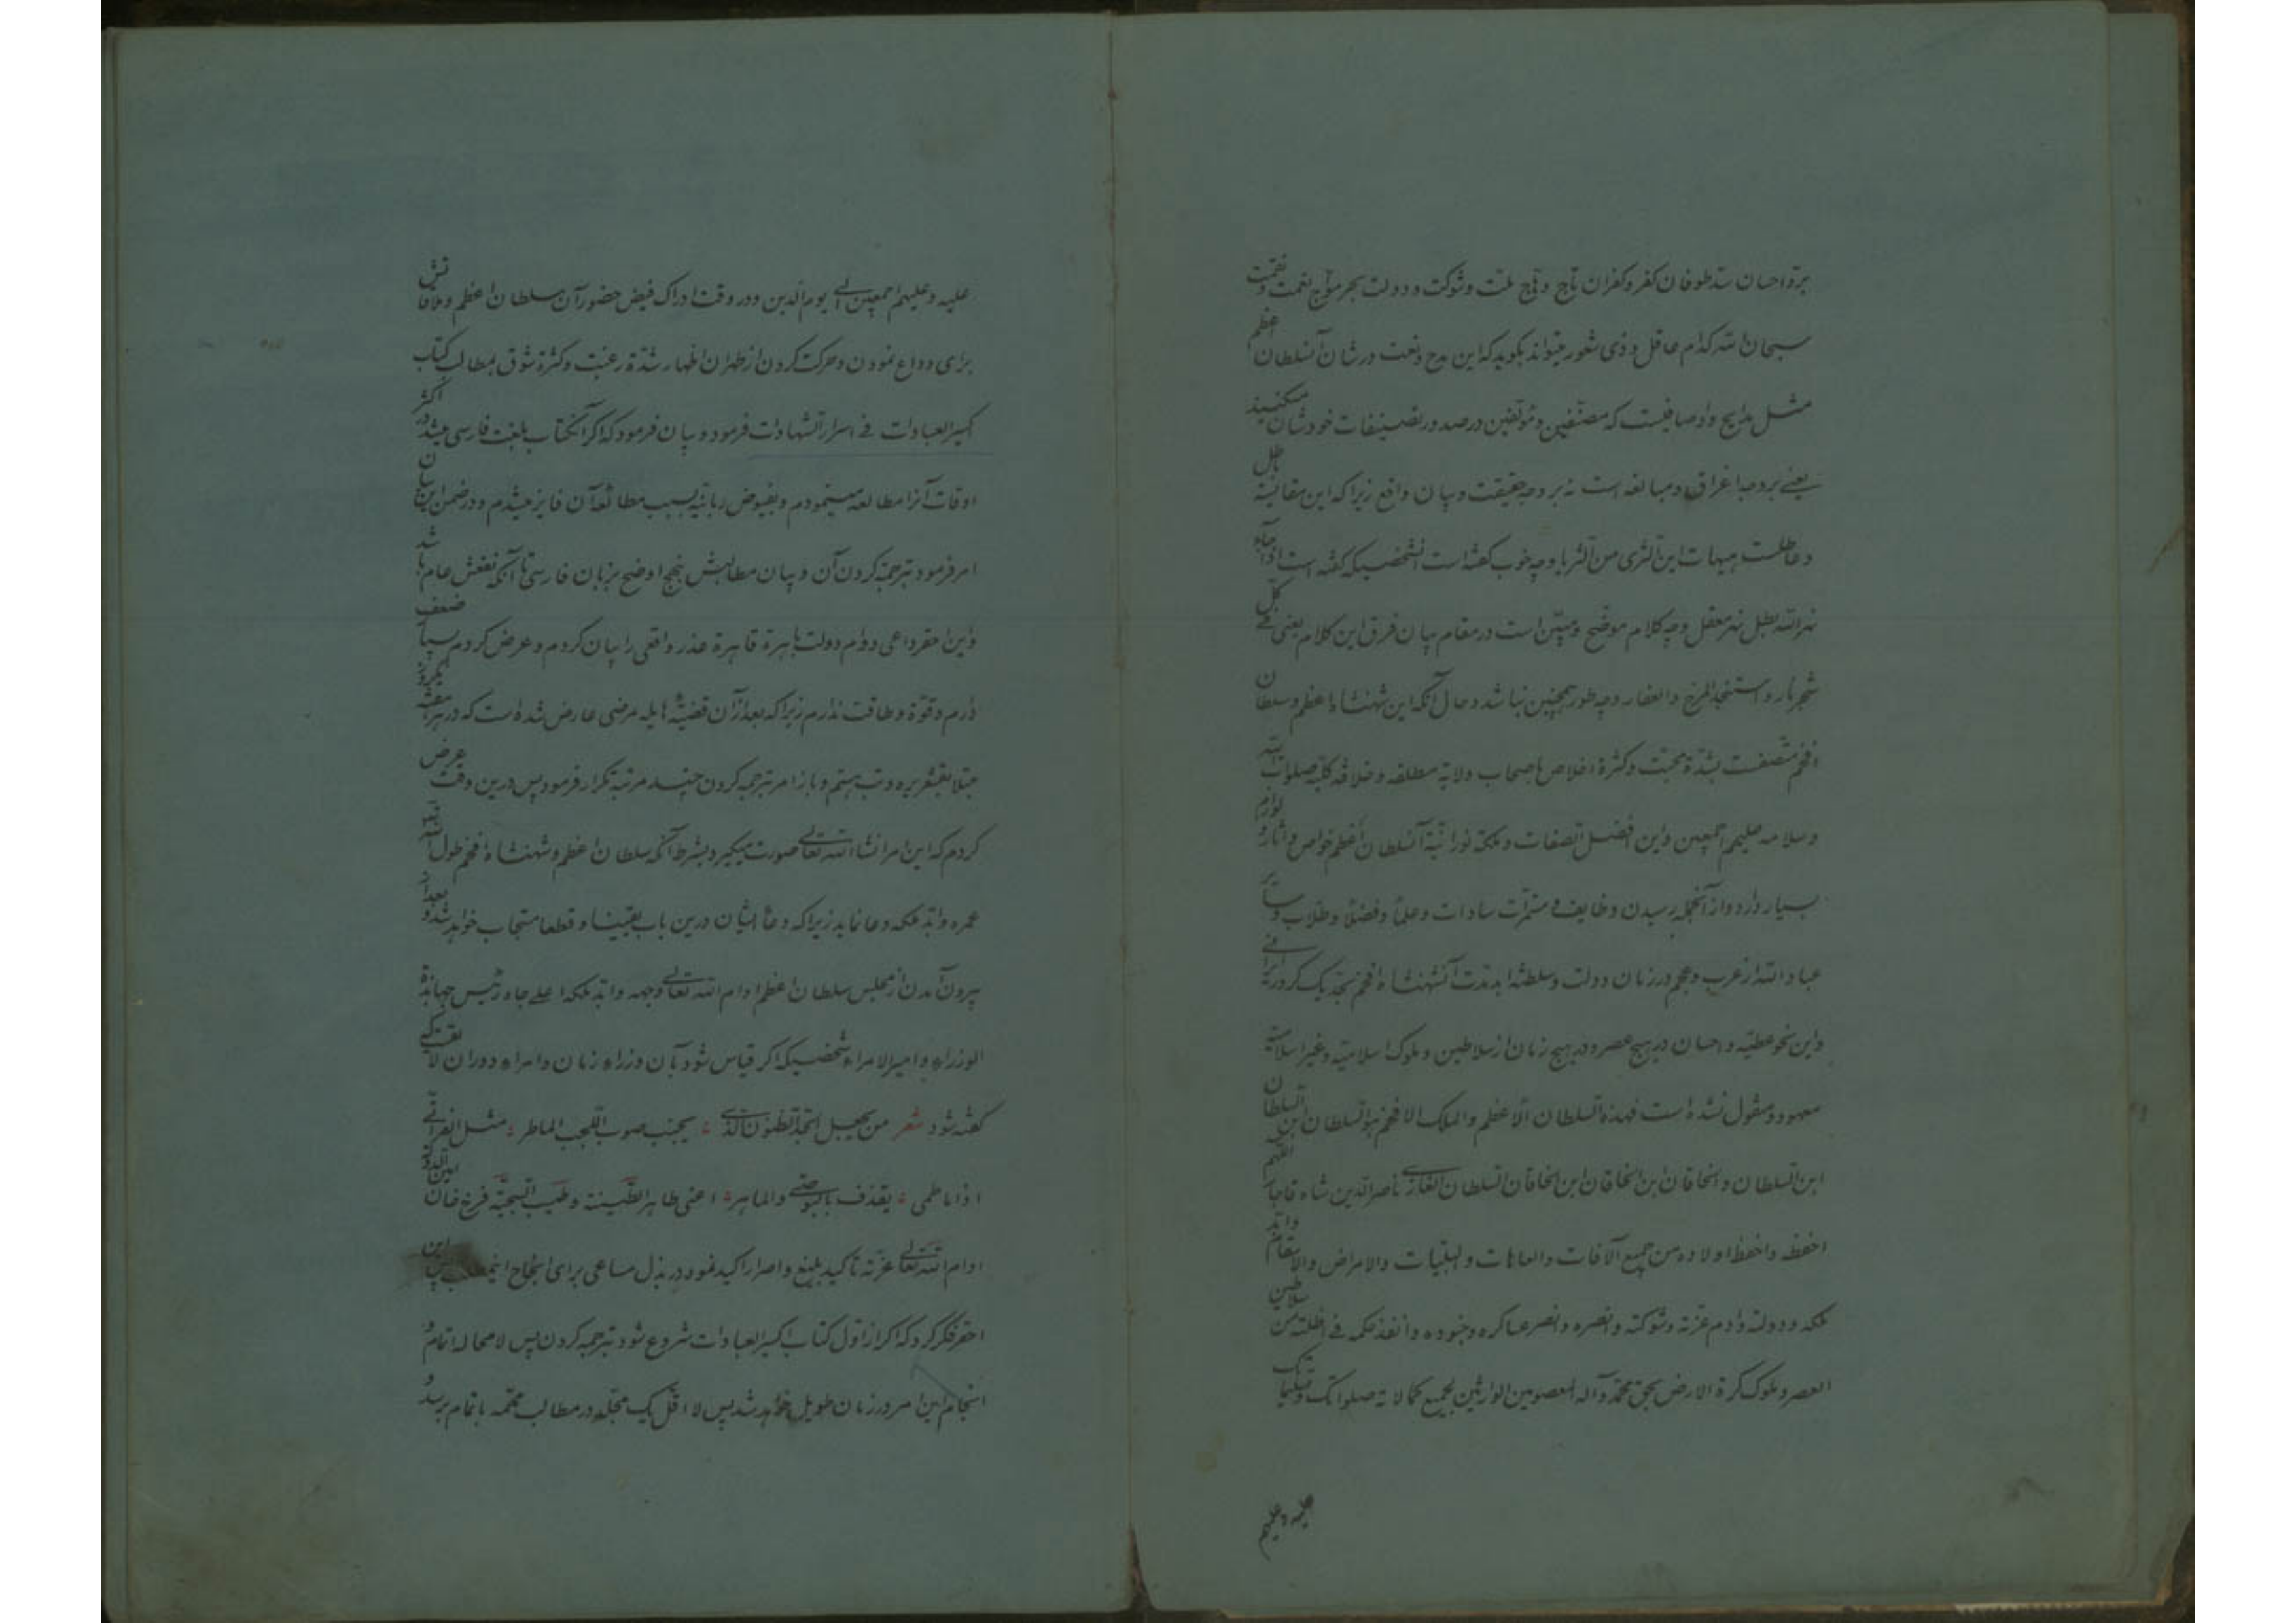 برّ و احسان شد طوفان کفر و کفران تاج و هاج ملت و شوکت و دولت بحر موّاج نعمت و نقمت
سبحان الله کدام عاقل و ذی شعور میتواند بگوید که این مدح و نعت در شان آنسلطان اعظم
مثل مدایح و اوصافیست که مصنّفین و مؤلّفین در صدور تصنیفات خودشان میکنند
یعنی بر وجه اغراق و مبالغه است نه بر وجه حقیقت و بیان واقع زیرا که این مقایسه باطل
و عاطلست هیهات این الثری من الثریا و چه خوب گفته است آنشخصیکه گفته است اذا جاء
نهر الله بطل نهر معقل و چه کلام موضح و مبیّن است در مقام بیان فرق این کلام یعنی فی کلّ
شجر نار و استمجد المرخ و العفار و چه طور همچنین نباشد و حال آنکه این شهنشاه اعظم و سلطان
افخم متّصفست بشدّة محبّت و کثرة اخلاص باصحاب ولایة مطلقه و خلافة کلیّه صلوات الله
و سلامه علیهم اجمعین و این افضل الصفات و ملکهٔ نورانیّهٔ آنسلطان اعظم خواص و آثار و لوازم
بسیار دارد و از آنجمله رسیدن وظایف و مستمرّات سادات و علما و فضلا و طلاب و سایر
عباد الله از عرب و عجم در زمان دولت و سلطنة ابدمدّت آنشهنشاه افخم بحدّ یک کرور
و این نحو عطیّه و احسان در هیچ عصر و در هیچ زمان از سلاطین و ملوک اسلامیّه و غیر اسلامیّه
معهود و منقول نشده است فهذه السلطان الاعظم و الملک الافخم هو السلطان ابن السلطان
ابن السلطان و الخاقان ابن الخاقان ابن الخاقان السلطان الغازی ناصر الدین شاه قاجار اللهم
احفظه و احفظ اولاده من جمیع الآفات و العاهات و البلیّات و الامراض و الاسقام و ابّد
ملکه و دولته و ادم عزّته و شوکته و انصره و انصر عساکره و جنوده و انفذ حکمه فی اظلّته من سلاطین
العصر و ملوک کرة الارض بحق محمّد و آله المعصومین الوارثین لجمیع کمالاته صلواتک و تسلیماتک
علیه و علیهم
علیه و علیهم اجمعین الی یوم الدین و در وقت ادراک فیض حضور آن سلطان اعظم و ملاقاتش
برای وداع نمودن و حرکت کردن از طهران اظهار شدّة رغبت و کثرة شوق بمطالب کتاب
اکسیر العبادات فی اسرار الشهادات فرمود و بیان فرمود که اگر آنکتاب بلغت فارسی میشد در اکثر
اوقات آنرا مطالعه مینمودم و بفیوض ربانیّه بسبب مطالعهٔ آن فایز میشدم و در ضمن این بیان
امر فرمود بترجمه کردن آن و بیان مطالبش بنهج اوضح بزبان فارسی تا آنکه نفعش عام باشد
و این احقر داعی دوام دولت باهرة قاهرة عذر واقعی را بیان کردم و عرض کردم بسیار ضعف
دارم و قوّة و طاقت ندارم زیرا که بعد از آن قضیّهٔ هایله مرضی عارض شده است که در هر هفته یکروز
مبتلا بقشعریره و تب هستم و باز امر بترجمه کردن چند مرتبه تکرار فرمود پس درین وقت عرض
کردم که این امر انشاء الله تعالی صورت میگیرد بشرط آنکه سلطان اعظم و شهنشاه افخم طول الله
عمره و ابّد ملکه دعا نماید زیرا که دعاء ایشان درین باب یقینا و قطعا مستجاب خواهد شد و بعد از
بیرون آمدن از مجلس سلطان اعظم ادام الله تعالی وجهه و ابّد ملکه اعلی جاه رئیس جهابذة
الوزراء و امیر الامراء شخصیکه اگر قیاس شود بآن وزراء زمان و امراء دوران لا یقتضی
گفته شود شعر من یجعل الجدّ الظنون الّذی ؛ یجنب صوب اللجب الماطر ؛ مثل الفراتی
اذا ما طمی ؛ یقذف بالبوصی و الماهر ؛ اعنی طاهر الطینة و طیب السجیّة فرخ خان امین الدوله
ادام الله تعالی عزّته تاکید بلیغ و اصرار اکید نمود در بذل مساعی برای انجاح اینمطلب پس این
احقر فکر کرد که اگر از اول کتاب اکسیر العبادات شروع شود بترجمه کردن پس لامحاله اتمام و
انجام این امر در زمان طویل خواهد شد پس لااقل یک مجلّد در مطالب مهمّه باتمام برسد و